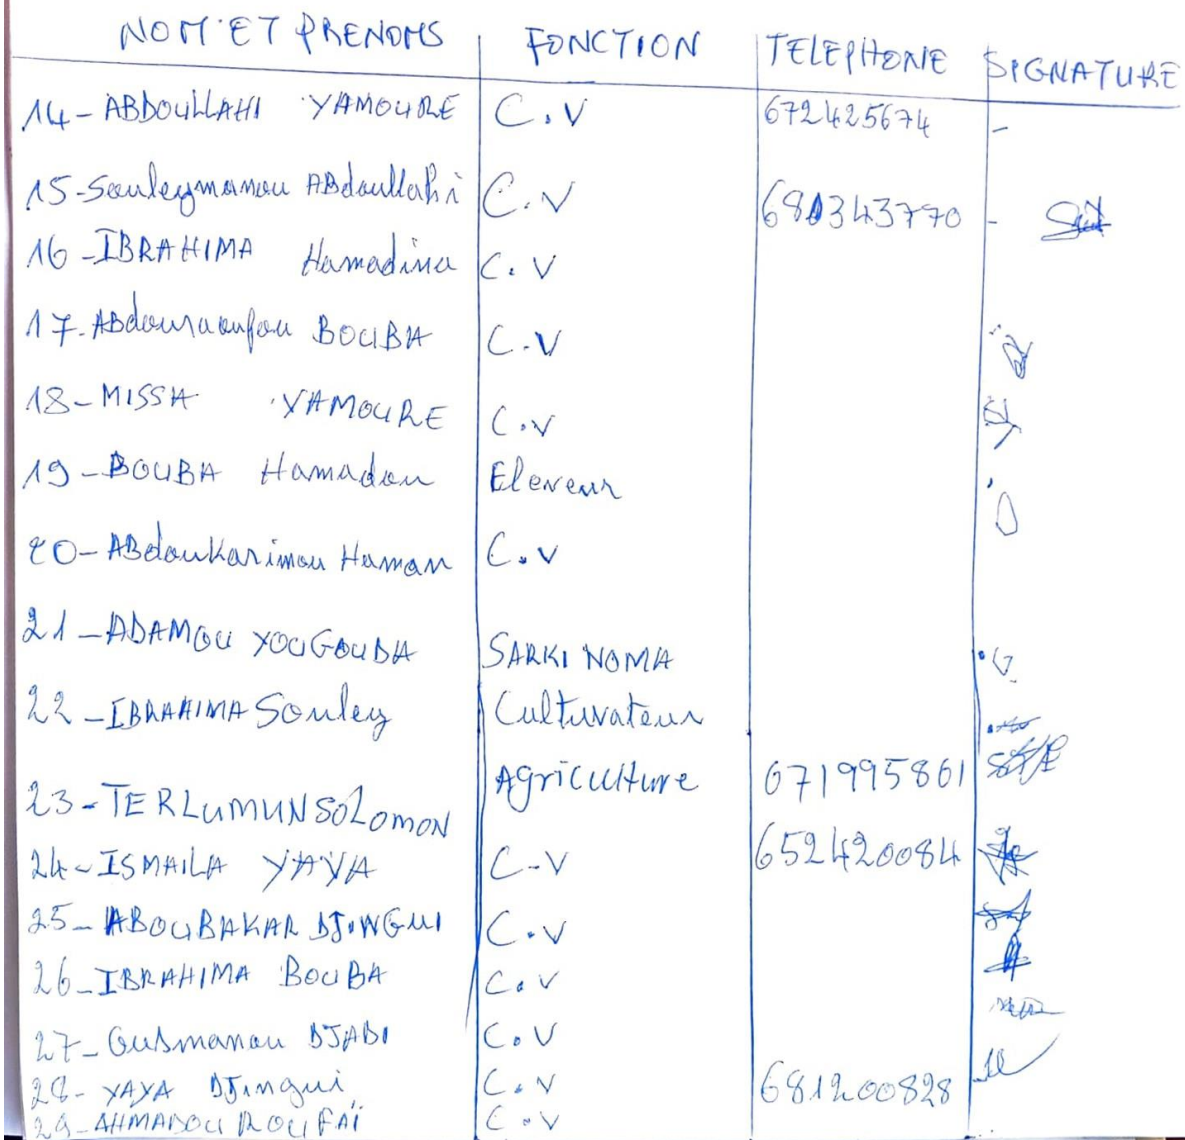 NOM ET PRENOMS FONCTION TELEPHONE SIGNATURE
14- ABDOULLAHI YAMOURE C.V 672425674 -
15- Souleymanou ABdoullahi C.V 680343770 -
16- IBRAHIMA Hamadina C.V
17- ABdouraoufou BOUBA C.V
18- MISSA YAMOURE C.V
19- BOUBA Hamadou Eleveur
20- ABdoukarimou Haman C.V
21- ADAMOU YOUGOUDA SARKI NOMA
22- IBRAHIMA Souley Cultuvateur
23- TERLUMUN SOLOMON Agriculture 671995861
24- ISMAILA YAYA C-V 652420084
25- ABOUBAKAR DJINGUI C.V
26- IBRAHIMA BOUBA C.V
27- Ousmanou DJABI C.V
28- YAYA DJingui C.V 681200828
29- AHMADOU ROUFAÏ C.V